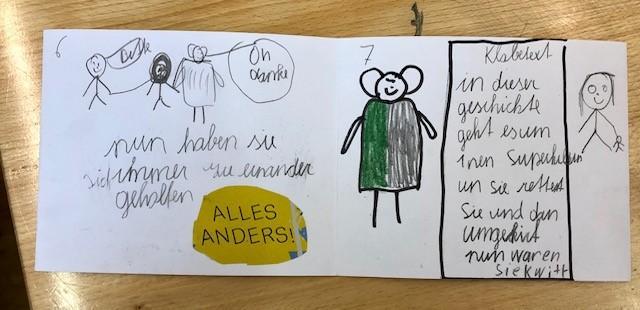 6
Bitte
Oh
danke
nun haben sie
sich immer zu einander
geholfen
ALLES
ANDERS!
7
Klabetext
in dieser
geschichte
geht es um
inen Superhelden
un sie rettest
Sie und dan
umgekirt
nun waren
sie kwitt